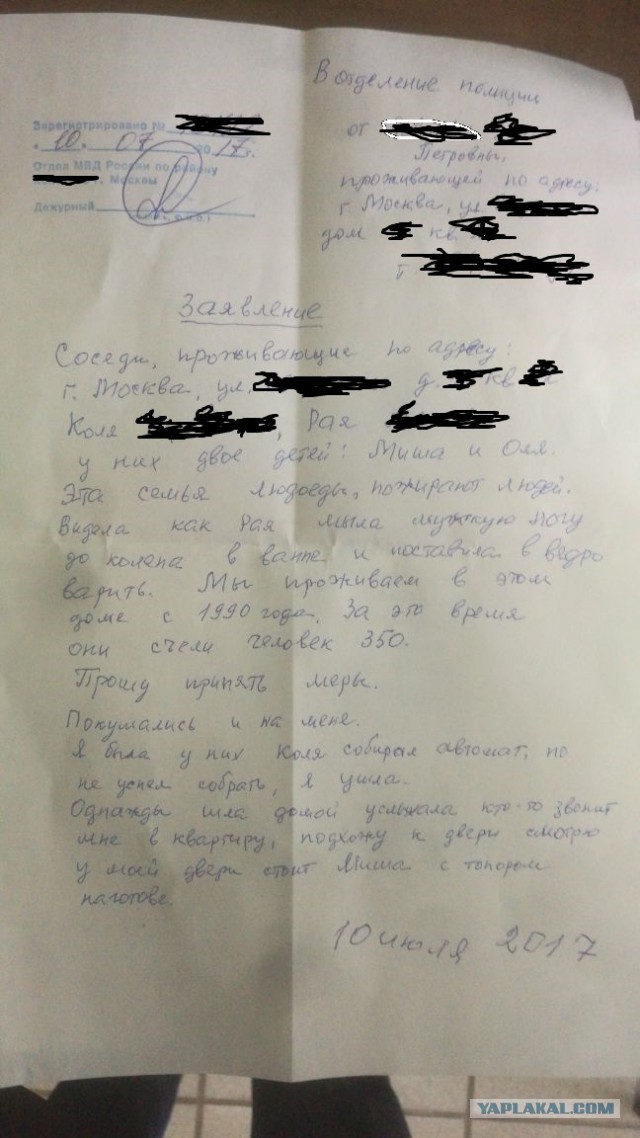 В отделение полиции
Зарегистрировано №
" 10. 07 2017г.
Отдел МВД России по району
г. Москвы
Дежурный
от
Петровны,
проживающей по адресу:
г. Москва, ул.
дом кв.
т
Заявление
Соседи, проживающие по адресу:
г. Москва, ул. д. кв.
Коля , Рая
у них двое детей: Миша и Оля.
Эта семья людоеды, пожирают людей.
Видела как Рая мыла мужскую ногу
до колена в ванне и поставила в ведро
варить. Мы проживаем в этом
доме с 1990 года. За это время
они съели человек 350.
Прошу принять меры.
Покушались и на меня.
Я была у них Коля собирал автомат, но
не успел собрать, я ушла.
Однажды шла домой услыхала кто-то звонит
мне в квартиру, подхожу к двери смотрю
у моей двери стоит Миша с топором
наготове.
10 июля 2017
YAPLAKAL.COM